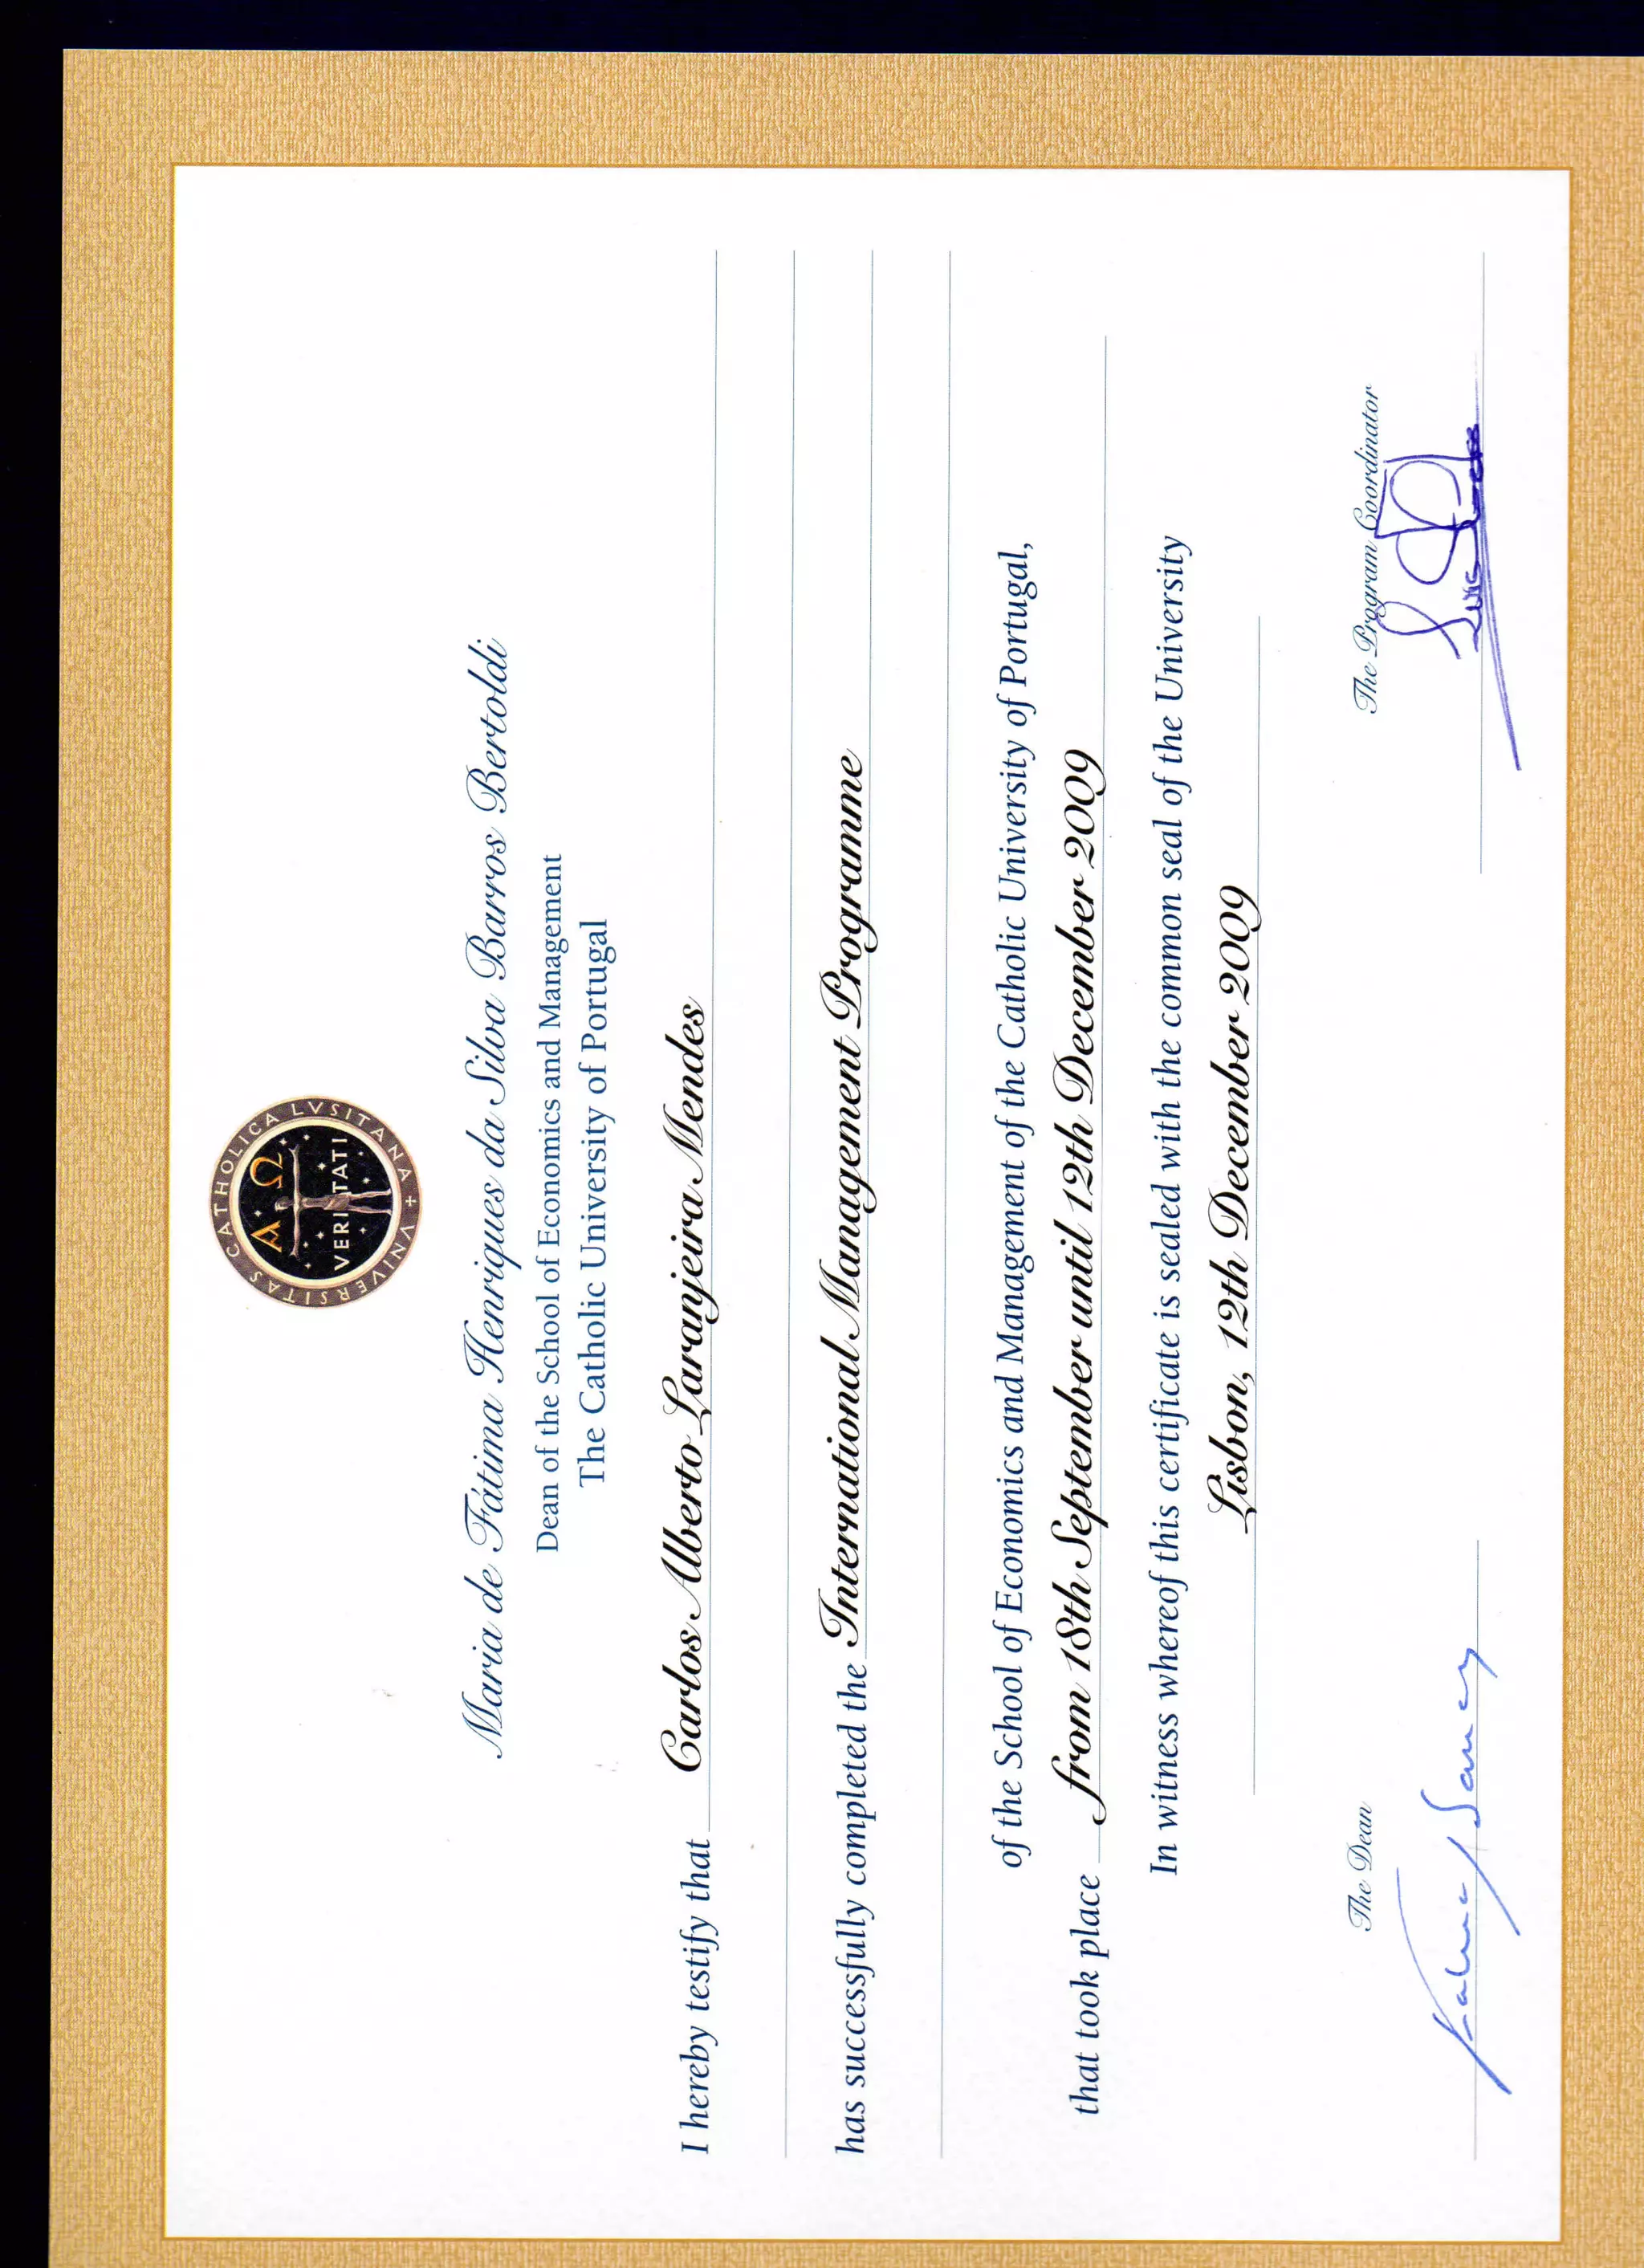 UNIVERSITAS CATHOLICA LVSITANA +
Α Ω
VERITATI
Maria de Fátima Henriques da Silva Barros Bertoldi
Dean of the School of Economics and Management
The Catholic University of Portugal
I hereby testify that Carlos Alberto Laranjeira Mendes
has successfully completed the International Management Programme
of the School of Economics and Management of the Catholic University of Portugal,
that took place from 18th September until 12th December 2009
In witness whereof this certificate is sealed with the common seal of the University
Lisbon, 12th December 2009
The Dean The Program Coordinator